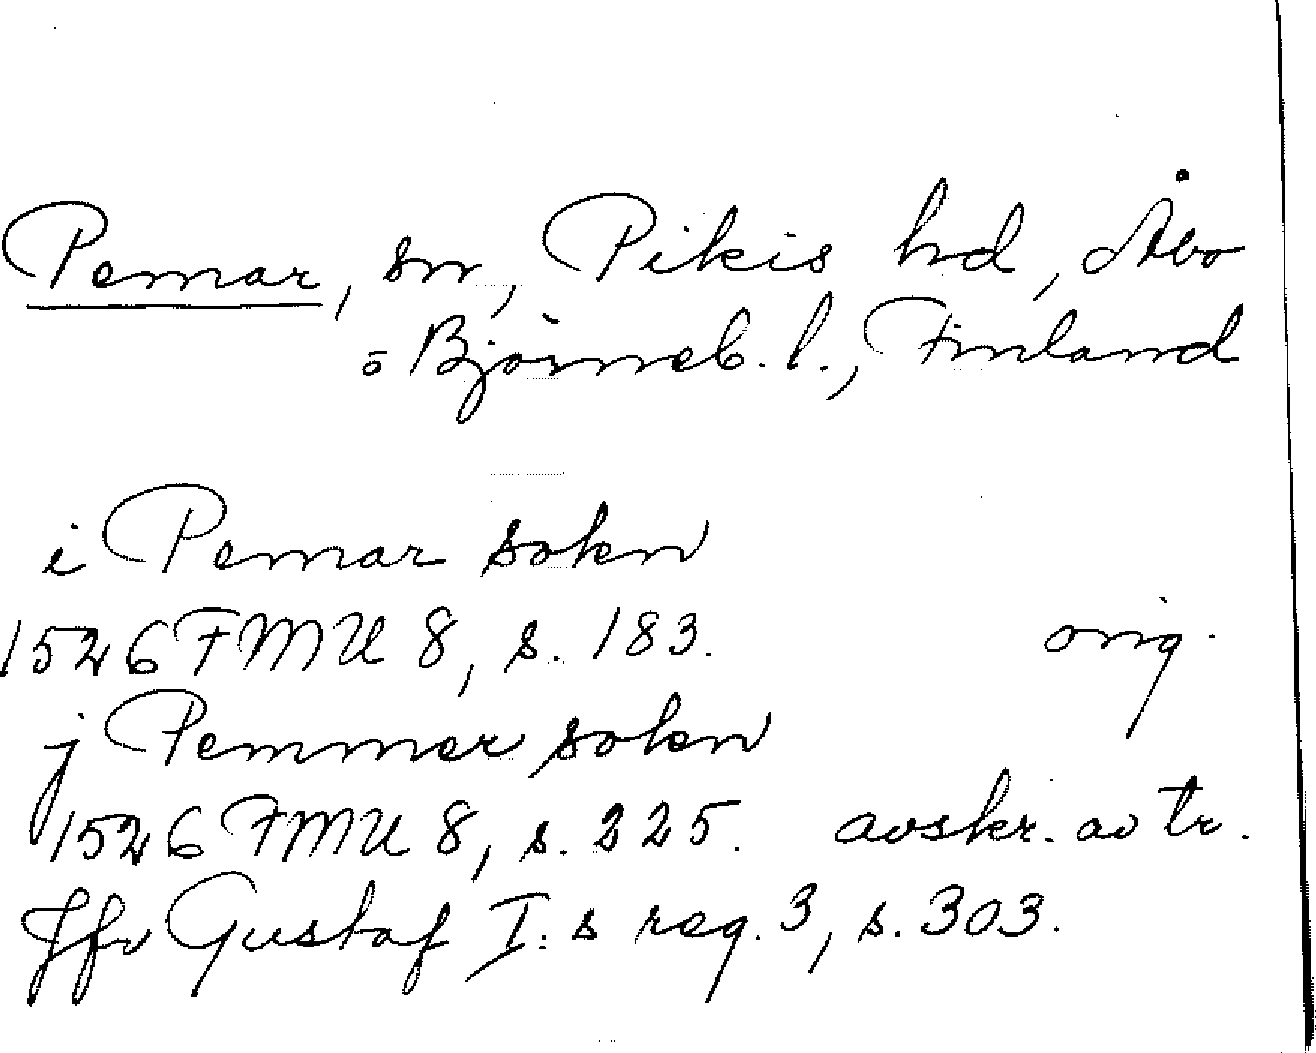 Pemar, sn, Pikis hd, Åbo
o Björneb. l., Finland
i Pemar sokn
1526 FMU 8, s. 183. orig.
j Pemmer sokn
1526 FMU 8, s. 225. avskr. av tr.
Jfr Gustaf I:s reg. 3, s. 303.